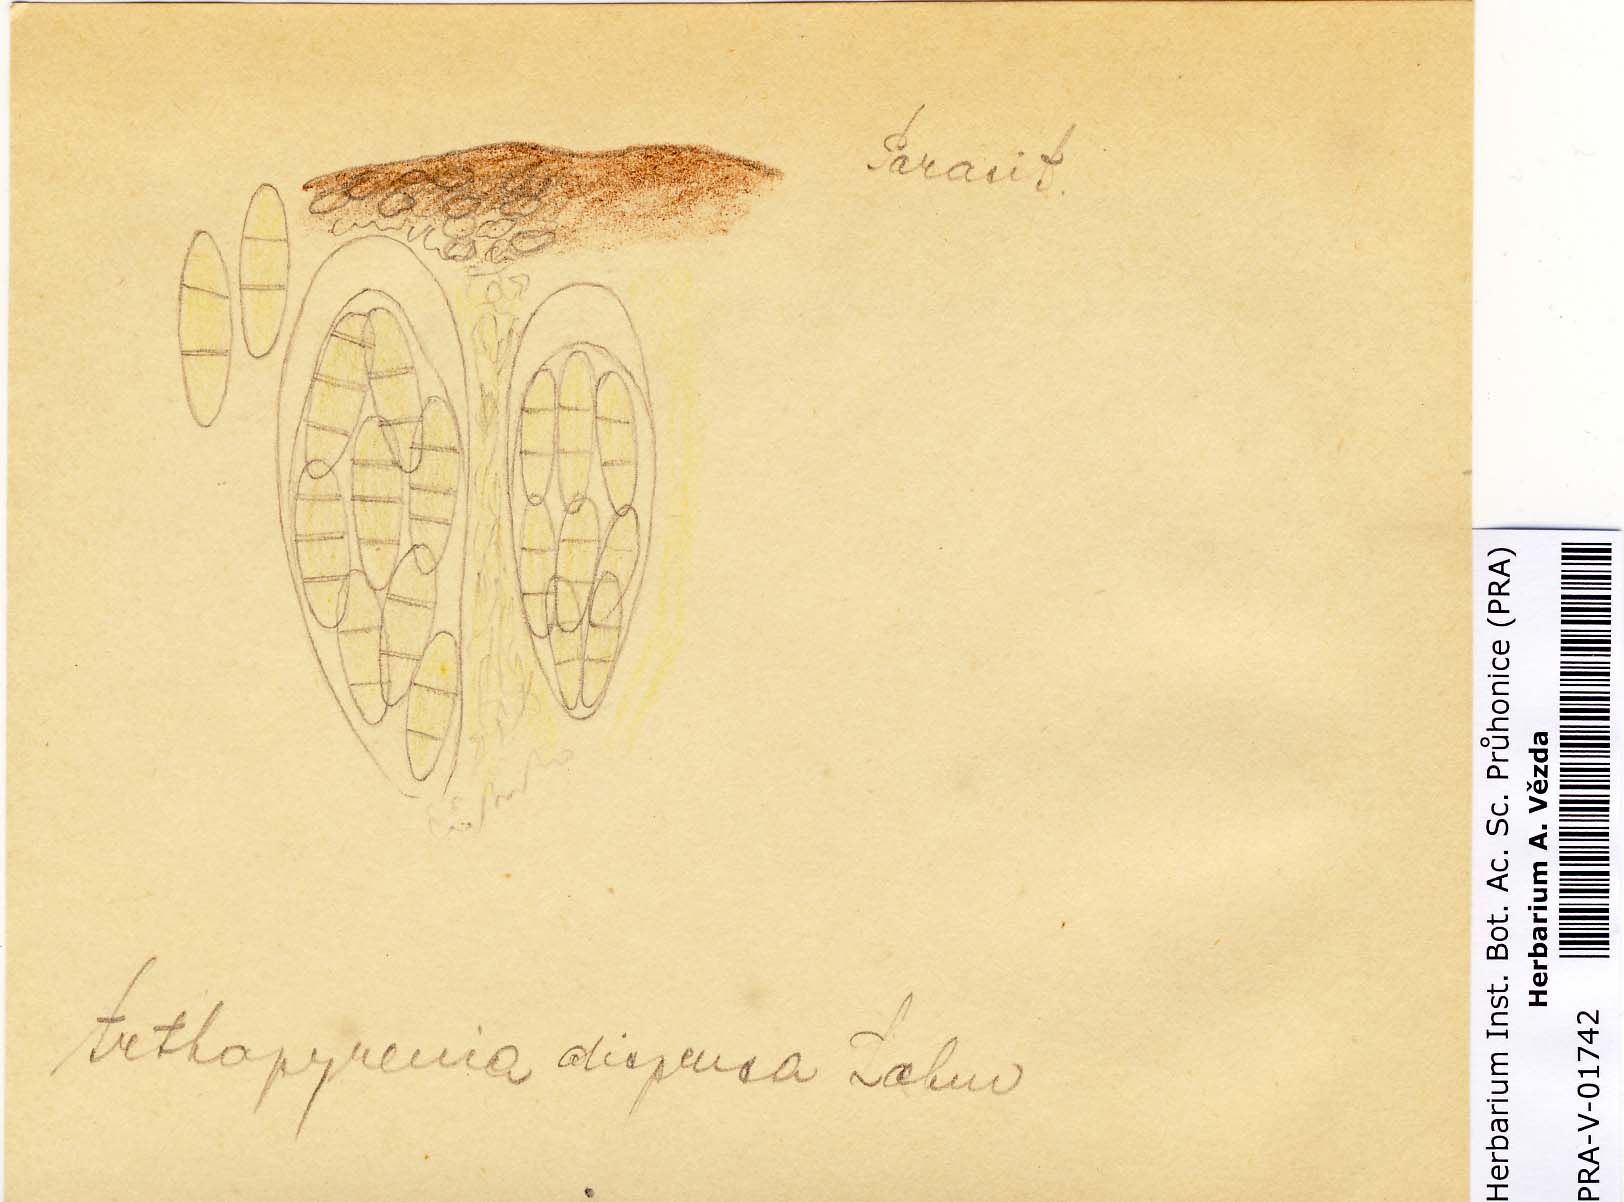 Parasit.
Arthopyrenia dispersa Lahm
Herbarium Inst. Bot. Ac. Sc. Průhonice (PRA)
Herbarium A. Vězda
PRA-V-01742